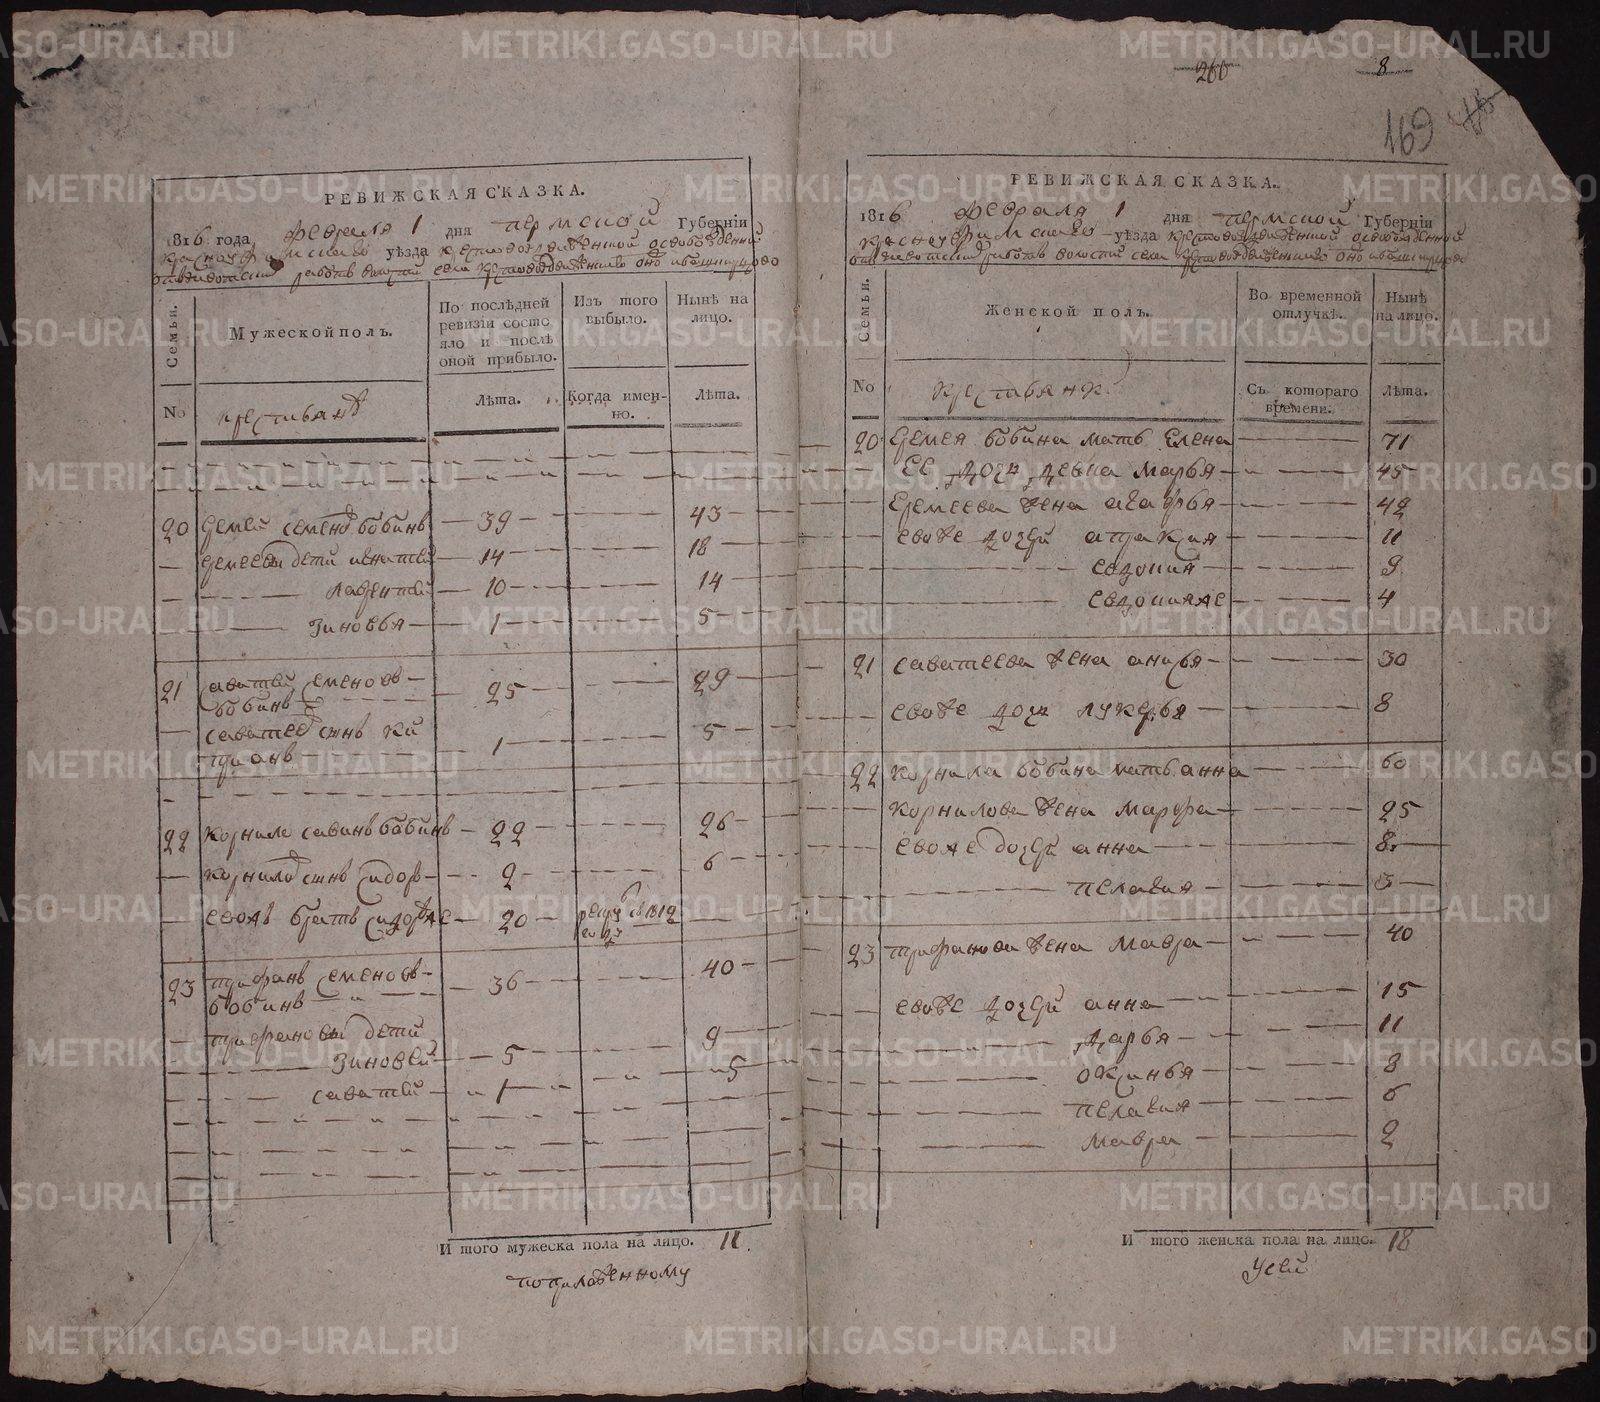 260
8
169
РЕВИЖСКАЯ СКАЗКА.
1816 года февраля 1 дня пермской Губерніи
уѣзда
Семьи.
Мужеской полъ.
По послѣдней ревизіи состояло и послѣ оной прибыло.
Изъ того выбыло.
Нынѣ на лицо.
No
крестьянъ
Лѣта.
Когда именно.
Лѣта.
20 Еремей семеновъ бобинъ 39 43
Еремеевы дети игнатей 14 18
лаврентей 10 14
Зиновья 1 5
21 саватей семеновъ 25 29
бобинъ
саватеевъ сынъ ки
приянъ 1 5
22 корнило савинъ бобинъ 22 26
корниловъ сынъ сидоръ 2 6
евожъ братъ сидоръ же 20 рекрут въ 1812
году
23 трифанъ семеновъ 36 40
бобинъ
трифановы дети
Зиновей 5 9
саватей 1 5
И того мужеска пола на лицо. 11.
РЕВИЖСКАЯ СКАЗКА.
1816 февраля 1 дня пермской Губерніи
красноуфимскаго уѣзда
Семьи.
Женской полъ.
Во временной отлучкѣ.
Нынѣ на лицо.
No
крестьянъ
Съ котораго времени.
Лѣта.
20 Еремея бобина мать Елена 71
Ее дочь девка марья 45
Еремеева жена агафья 42
евоже дочери апракия 11
евдокия 9
евдокия же 4
21 саватеева жена анисья 30
евоже дочь лукерья 8
22 корнила бобина мать анна 60
корнилова жена марфа 25
евоже дочери анна 8
пелагия 3
23 трифанова жена мавра 40
евоже дочери анна 15
дарья 11
оксинья 8
пелагия 6
мавра 2
И того женска пола на лицо. 18